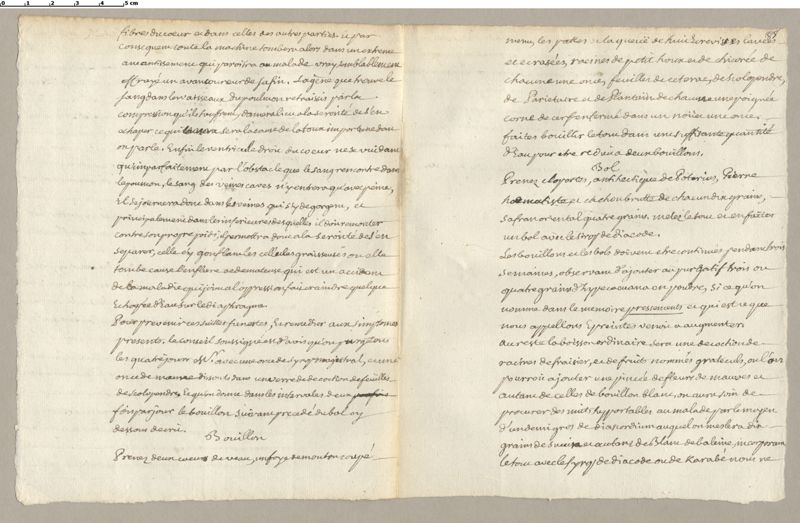 0 1 2 3 4 5 cm
fibres du coeur et dans celles des autres parties. et par
consequent toute la machine tombera alors dans un extreme
aneantissement qui paroitra au malade vray semblablement
effrayé un avantcoureur de sa fin. La gêne que trouve le
sang dans les vaisseaux du poulmon retraissis par la
compression qu'ils souffrent, donnera lieu a la serosité de s'en
echaper ce qui sera la cause de la toux importune dont
on parle. Enfin le ventricule droit du coeur ne se vuidant
qu'imparfaitement par l'obstacle que le sang rencontre dans
le poumon, le sang des veines caves n'y entrera qu'avec peine,
il sejournera donc dans les veines qui s'y degorgent, et
principalement dans les inferieures desquelles il doit remonter
contre son propre poids, il permettra donc a la serosité de s'en
separer, celle cy gonflant les cellules graisseuses on alte
tombe cause l'enflure oedemateuse qui est un accident
de la maladie et qui joint a l'oppression fait craindre quelque
Echapée d'eau sur le diaphragme
Pour prevenir ces suites funestes, et remedier aux simptomes
presents. le conseil soussigné est d'avis qu'on purge tous
les quatre jours avec une once de syrop magistral, et une
once de manne dissouts dans un verre de decoction de feuilles
de scolopendre, et qu'on donne dans les intervales deux
fois par jour le bouillon suivant precedé du bol cy
dessous decrit.
Bouillon
Prenez deux coeurs de veau, un foye de mouton coupé
88
menu, les pattes et la queuë de huit Ecrevisses lavées
et ecrasées, racines de petit houx et de chicorée de
chacune une once, feuilles de ceterac, de scolopendre,
de Parietaire et de Plantain de chacune une poignée
corne de cerf enfermé dans un noüet une once,
faites bouillir le tout dans une suffisante quantité
d'Eau pour etre reduit a deux bouillons.
Bol
Prenez cloportes, antihectique de Poterius, Pierre
hoematiste, et cachou brutte de chacun dix grains,
safran oriental quatre grains. melez le tout et en faites
un bol avec le syrop de diacode.
Les bouillons et les bols doivent etre continués pendant trois
Semaines, observant d'ajouter au purgatif trois ou
quatre grains d'hypecacuana en poudre, si ce qu'on
nomme dans le memoire pressements et qui est ce que
nous appellons Epreintes venoit a augmenter.
au reste la boisson ordinaire sera une decoction de
racines de fraisier, et de fruits nommés gratecul, ou l'on
pourroit ajouter une pincée de fleurs de mauves et
autant de celles de bouillon blanc, on aura soin de
procurer des nuits supportables au malade par le moyen
d'un demi gros de diascordium auquel on meslera dix
grains de succin et autant de Blanc de baleine, incorporant
le tout avec le syrop de diacode ou de Karabé nous ne